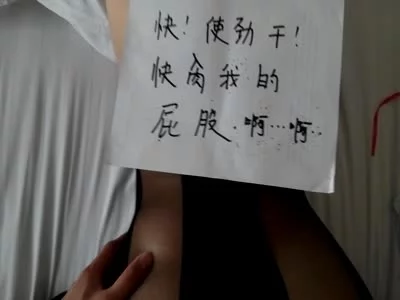 快！使劲干！
快肏我的
屁股.啊…啊..